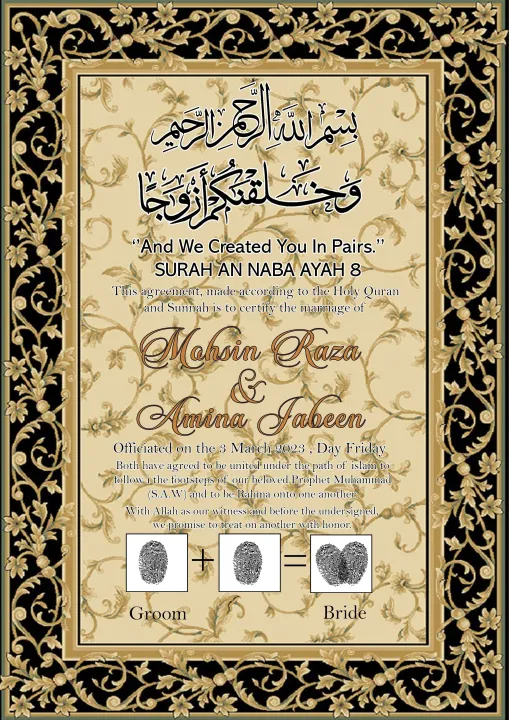 بِسْمِ اللهِ الرَّحْمٰنِ الرَّحِيْمِ
وَخَلَقْنٰكُمْ أَزْوَاجًا
‘‘And We Created You In Pairs.’’
SURAH AN NABA AYAH 8
This agreement, made according to the Holy Quran
and Sunnah is to certify the marriage of
Mohsin Raza
&
Amina Jabeen
Officiated on the 3 March 2023 , Day Friday
Both have agreed to be united under the path of islam to
follow the footsteps of our beloved Prophet Muhammad
(S.A.W) and to be Rahma onto one another
With Allah as our witness and before the undersigned,
we promise to treat on another with honor.
+ =
Groom Bride